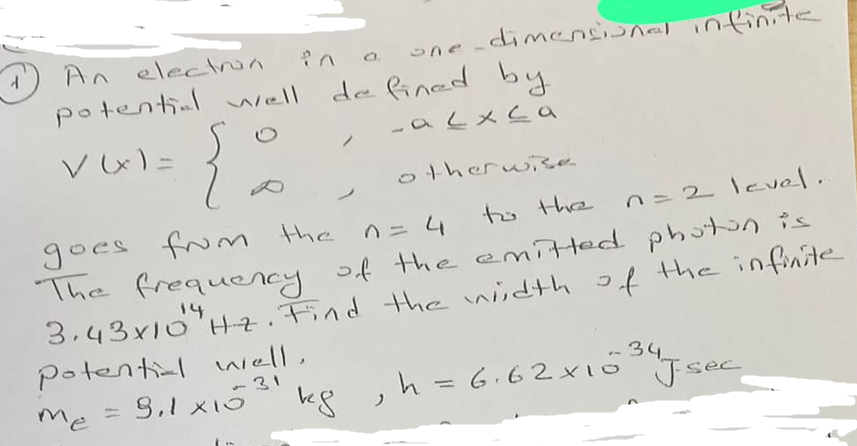 1) An electron in a one-dimensional infinite
potential well defined by
V(x) = { 0 , -a ≤ x ≤ a
∞ , otherwise
goes from the n=4 to the n=2 level.
The frequency of the emitted photon is
3.43x10^14 Hz. Find the width of the infinite
potential well.
me = 9.1 x10^-31 kg , h = 6.62x10^-34 J.sec